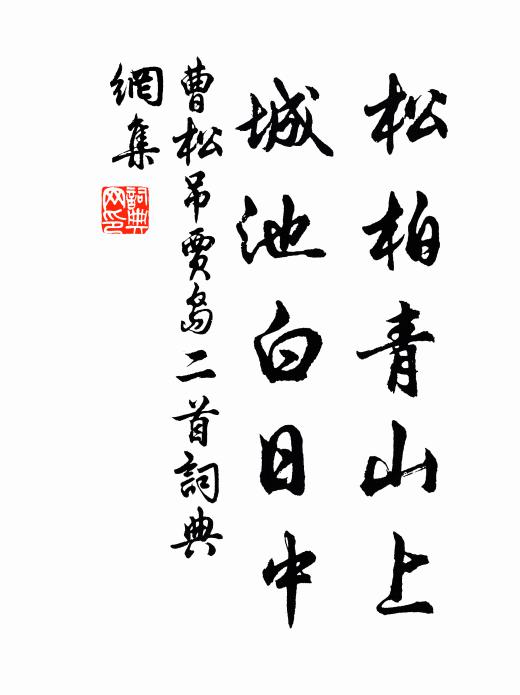 松柏青山上
城池白日中
曹松吊賈島二首詞典
網集
詞典网印